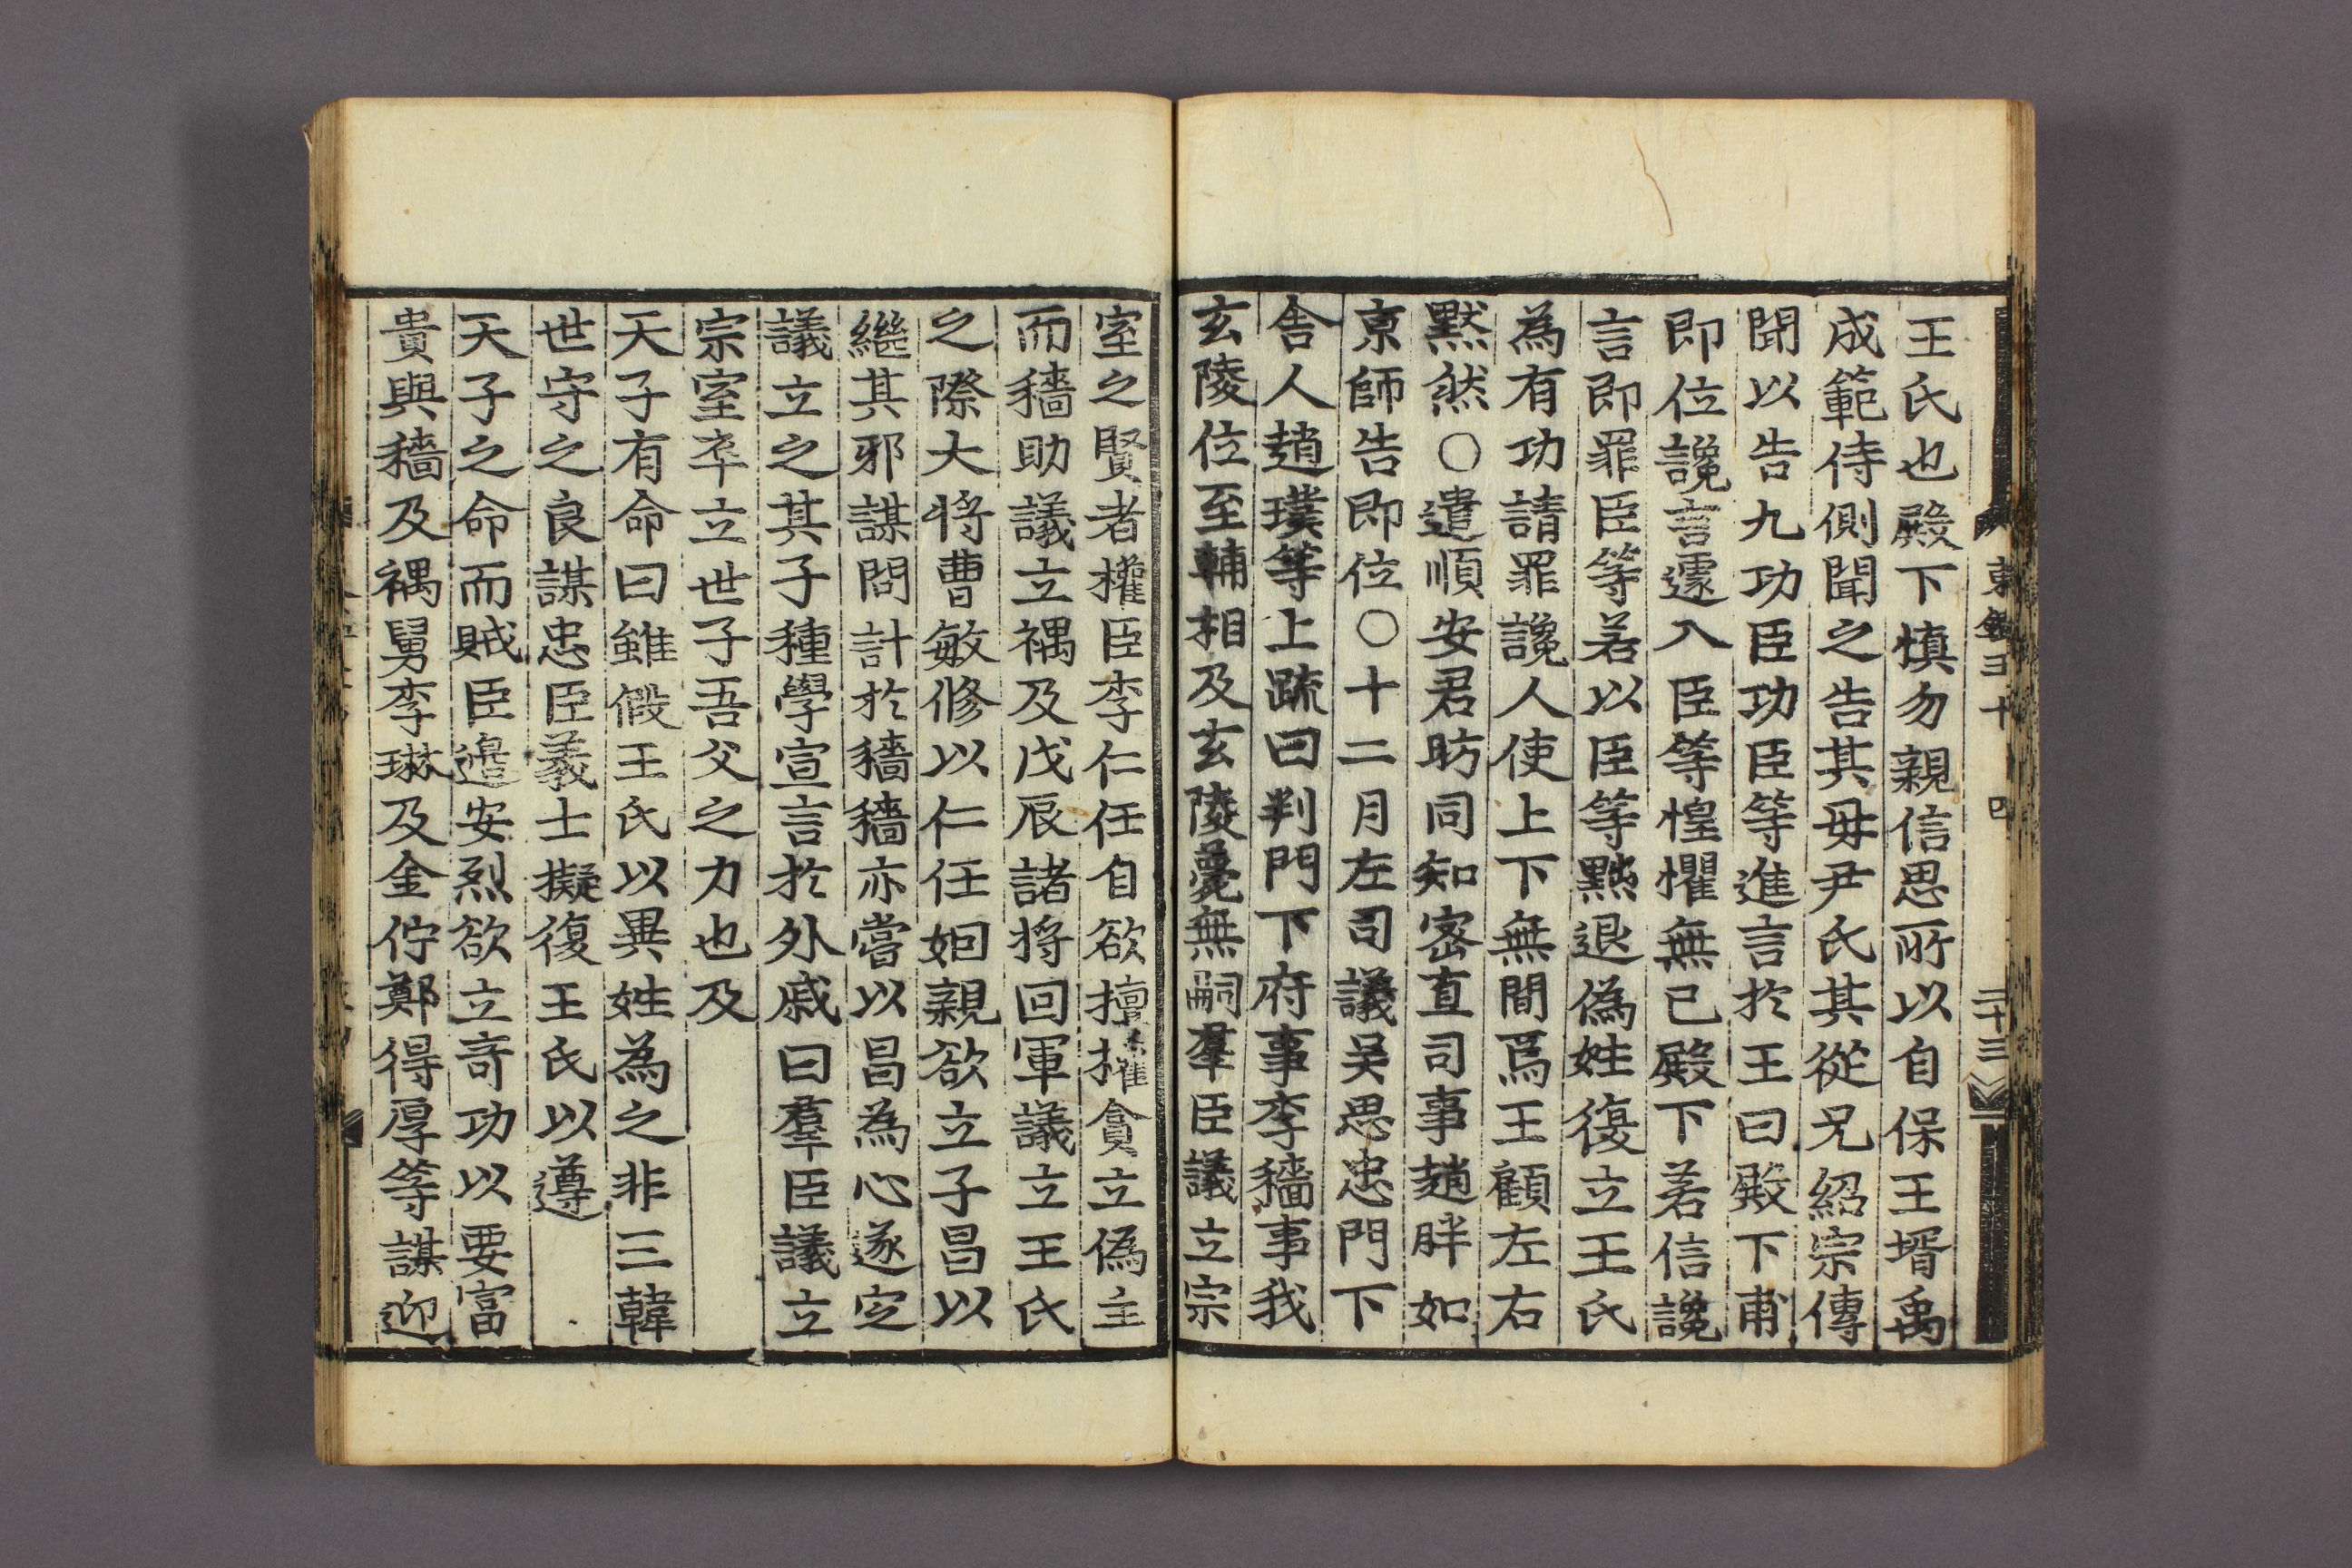 東鑑五十四
二十三
王氏也殿下慎勿親信思所以自保王壻禹
成範侍側聞之告其母尹氏其從兄紹宗傳
聞以告九功臣功臣等進言於王曰殿下甫
即位讒言遽入臣等惶懼無已殿下若信讒
言即罪臣等若以臣等黜退僞姓復立王氏
為有功請罪讒人使上下無間焉王顧左右
默然○遣順安君昉同知密直司事趙胖如
京師告即位○十二月左司議吴思忠門下
舍人趙璞等上疏曰判門下府事李穡事我
玄陵位至輔相及玄陵薨無嗣羣臣議立宗
室之賢者權臣李仁任自欲擅權貪立僞主
而穡助議立禑及戊辰諸将回軍議立王氏
之際大将曹敏修以仁任姻親欲立子昌以
繼其邪謀問計於穡穡亦嘗以昌為心遂定
議立之其子種學宣言於外戚曰羣臣議立
宗室卒立世子吾父之力也及
天子有命曰雖假王氏以異姓為之非三韓
世守之良謀忠臣義士擬復王氏以遵
天子之命而賊臣邉安烈欲立奇功以要富
貴與穡及禑舅李琳及金佇鄭得厚等謀迎